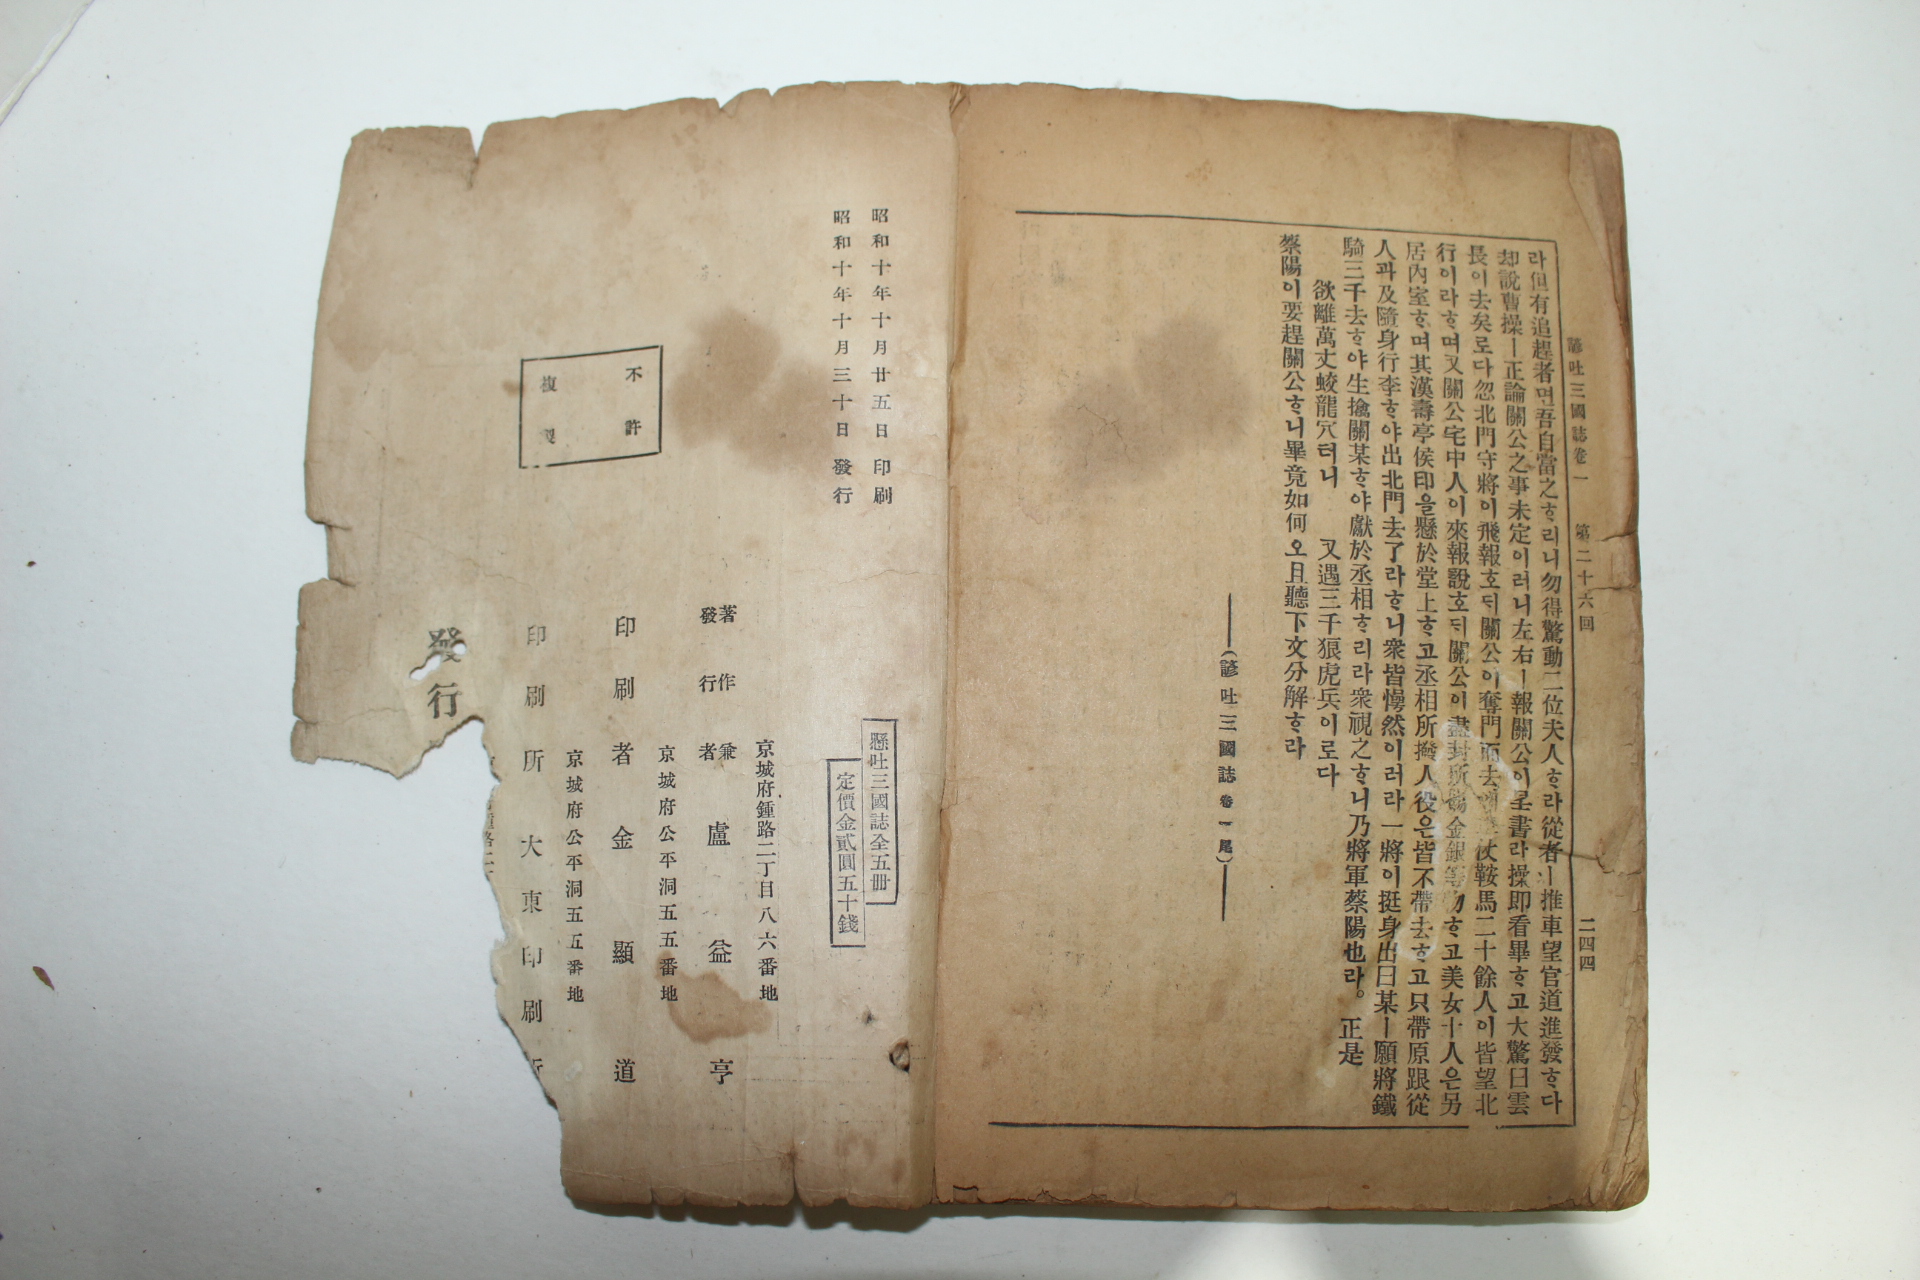 諺吐三國誌卷一 第二十六回 二四四
라但有追趕者면吾自當之ᄒᆞ리니勿得驚動二位夫人ᄒᆞ라從者ㅣ推車望官道進發ᄒᆞ다
却說曹操ㅣ正論關公之事未定이러니左右ㅣ報關公이呈書라操即看畢ᄒᆞ고大驚曰雲
長이去矣로다忽北門守將이飛報호ᄃᆡ關公이奪門而去 仗鞍馬二十餘人이皆望北
行이라ᄒᆞ며又關公宅中人이來報說호ᄃᆡ關公이盡封所賜金銀等物ᄒᆞ고美女十人은另
居內室ᄒᆞ며其漢壽亭侯印을懸於堂上ᄒᆞ고丞相所撥人役은皆不帶去ᄒᆞ고只帶原跟從
人과及隨身行李ᄒᆞ야出北門去了라ᄒᆞ니衆皆愕然이러라一將이挺身出曰某ㅣ願將鐵
騎三千去ᄒᆞ야生擒關某ᄒᆞ야獻於丞相ᄒᆞ리라衆視之ᄒᆞ니乃將軍蔡陽也라。正是
欲離萬丈蛟龍穴터니 又遇三千狼虎兵이로다
蔡陽이要趕關公ᄒᆞ니畢竟如何오且聽下文分解ᄒᆞ라
(諺吐三國誌卷一尾)
昭和十年十月廿五日 印刷
昭和十年十月三十日 發行
懸吐三國誌全五冊
定價金貳圓五十錢
不許
複製
京城府鍾路二丁目八六番地
著作兼
發行者 盧益亨
京城府公平洞五五番地
印刷者 金顯道
京城府公平洞五五番地
印刷所 大東印刷所
發行